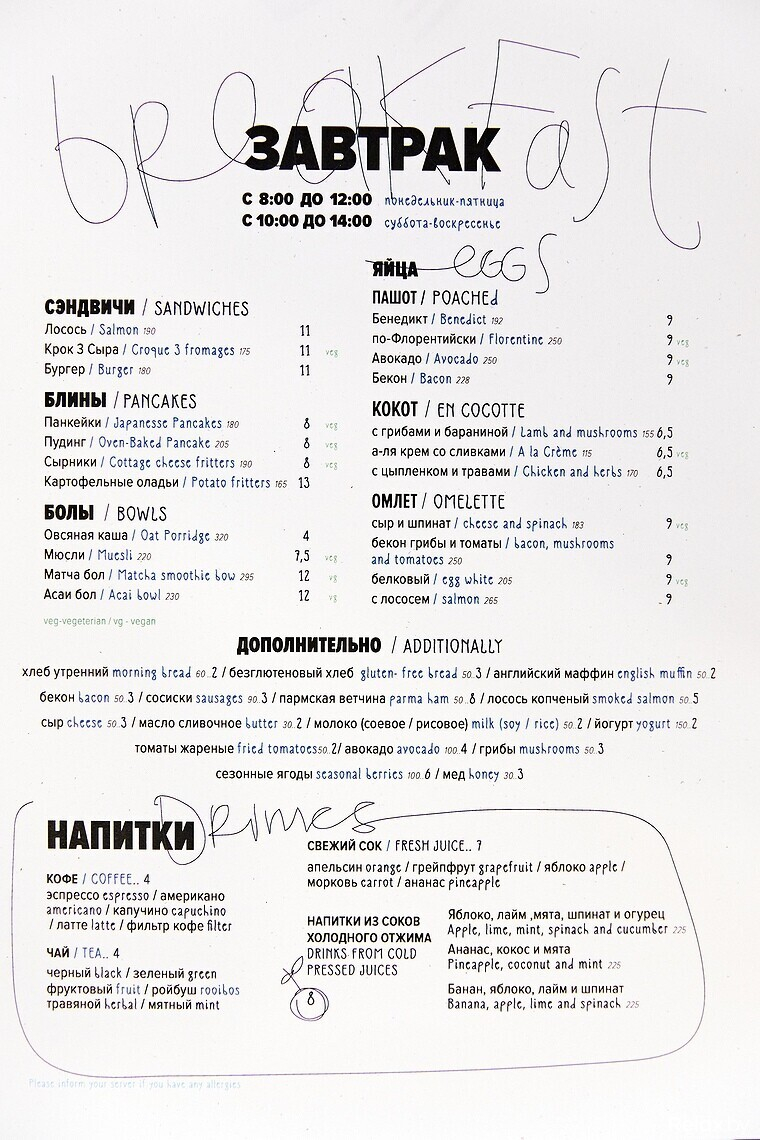 breakfast
ЗАВТРАК
С 8:00 ДО 12:00 понедельник-пятница
С 10:00 ДО 14:00 суббота-воскресенье
СЭНДВИЧИ / SANDWICHES
Лосось / Salmon 190 11
Крок 3 Сыра / Croque 3 fromages 175 11 veg
Бургер / Burger 180 11
БЛИНЫ / PANCAKES
Панкейки / Japanesse Pancakes 180 8 veg
Пудинг / Oven-Baked Pancake 205 8 veg
Сырники / Cottage cheese fritters 190 8 veg
Картофельные оладьи / Potato fritters 165 13
БОЛЫ / BOWLS
Овсяная каша / Oat Porridge 320 4
Мюсли / Muesli 220 7,5 veg
Матча бол / Matcha smoothie bow 295 12 vg
Асаи бол / Acai bowl 230 12 vg
veg-vegeterian / vg - vegan
ЯЙЦА eGGS
ПАШОТ / POACHEd
Бенедикт / Benedict 192 9
по-Флорентийски / Florentine 250 9 veg
Авокадо / Avocado 250 9 veg
Бекон / Bacon 228 9
КОКОТ / EN COCOTTE
с грибами и бараниной / Lamb and mushrooms 155 6,5
а-ля крем со сливками / A la Crème 115 6,5 veg
с цыпленком и травами / Chicken and herbs 170 6,5
ОМЛЕТ / OMELETTE
сыр и шпинат / cheese and spinach 183 9 veg
бекон грибы и томаты / bacon, mushrooms
and tomatoes 250 9
белковый / egg white 205 9 veg
с лососем / salmon 265 9
ДОПОЛНИТЕЛЬНО / ADDITIONALLY
хлеб утренний morning bread 60..2 / безглютеновый хлеб gluten- free bread 50..3 / английский маффин english muffin 50..2
бекон bacon 50..3 / сосиски sausages 90..3 / пармская ветчина parma ham 50..8 / лосось копченый smoked salmon 50..5
сыр cheese 50..3 / масло сливочное butter 30..2 / молоко (соевое / рисовое) milk (soy / rice) 50..2 / йогурт yogurt 150..2
томаты жареные fried tomatoes50..2/ авокадо avocado 100..4 / грибы mushrooms 50..3
сезонные ягоды seasonal berries 100..6 / мед honey 30..3
НАПИТКИ Drinks
КОФЕ / COFFEE.. 4
эспрессо espresso / американо
americano / капучино capuchino
/ латте latte / фильтр кофе filter
ЧАЙ / TEA.. 4
черный black / зеленый green
фруктовый fruit / ройбуш rooibos
травяной herbal / мятный mint
СВЕЖИЙ СОК / FRESH JUICE.. 7
апельсин orange / грейпфрут grapefruit / яблоко apple /
морковь carrot / ананас pineapple
НАПИТКИ ИЗ СОКОВ
ХОЛОДНОГО ОТЖИМА
DRINKS FROM COLD
PRESSED JUICES
8
Яблоко, лайм ,мята, шпинат и огурец
Apple, lime, mint, spinach and cucumber 225
Ананас, кокос и мята
Pineapple, coconut and mint 225
Банан, яблоко, лайм и шпинат
Banana, apple, lime and spinach 225
Please inform your server if you have any allergies